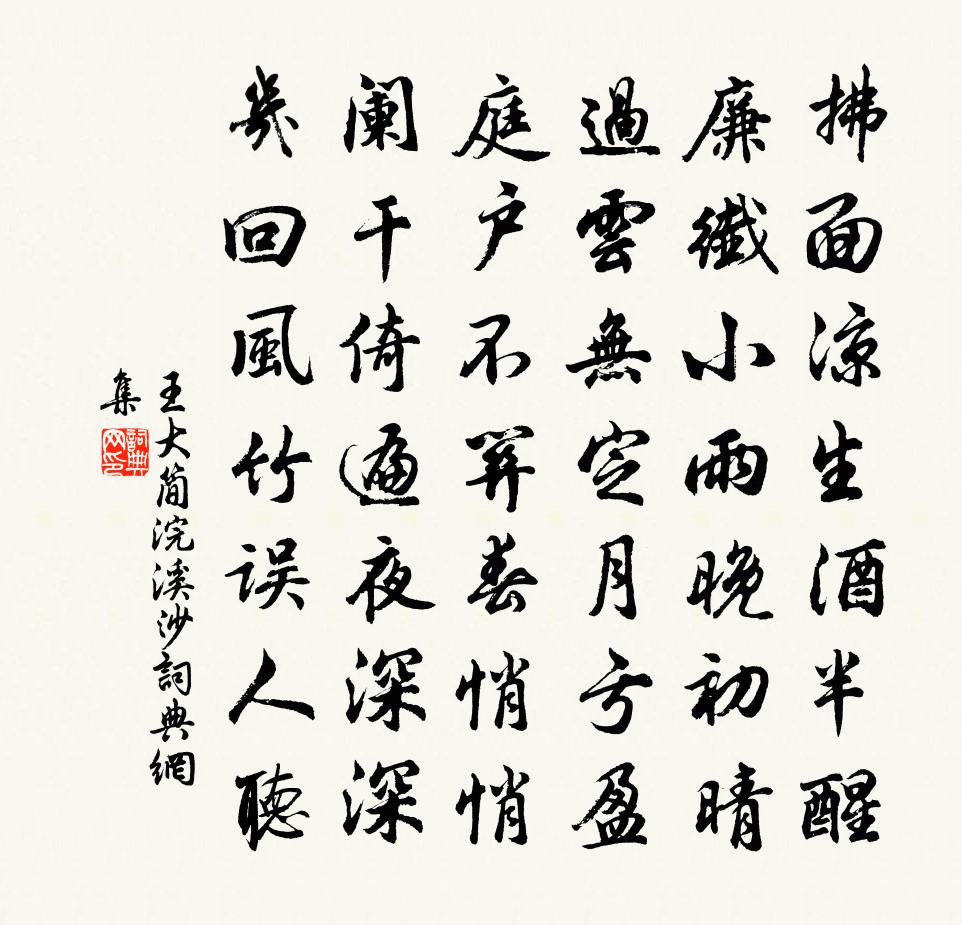 拂面涼生酒半醒
廉纖小雨晚初晴
過雲無定月亏盈
庭户不關春悄悄
阑干倚遍夜深深
幾回風竹误人聽
王大简浣溪沙詞典網
集
詞典
网印